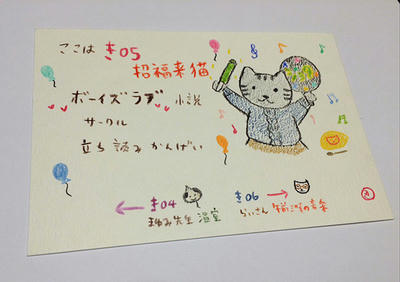 ここは き05
招福来猫
ボーイズラブ 小説
サークル
立ち読みかんげい
き04
まゆみ先生 温室
き06
らいさん 午前三時の音楽